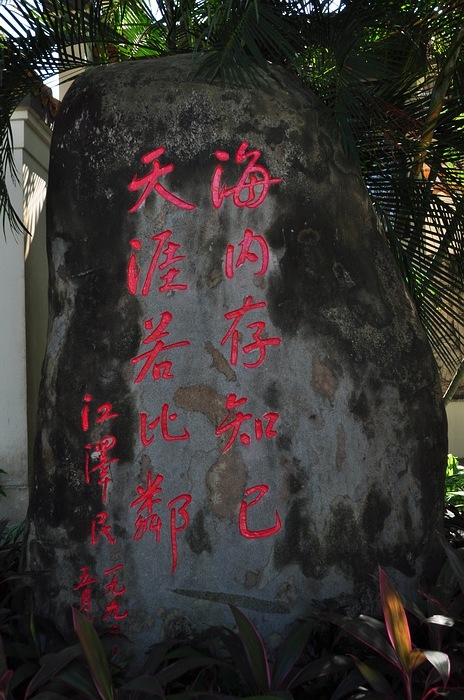 海内存知己
天涯若比鄰
江澤民
一九九
五月